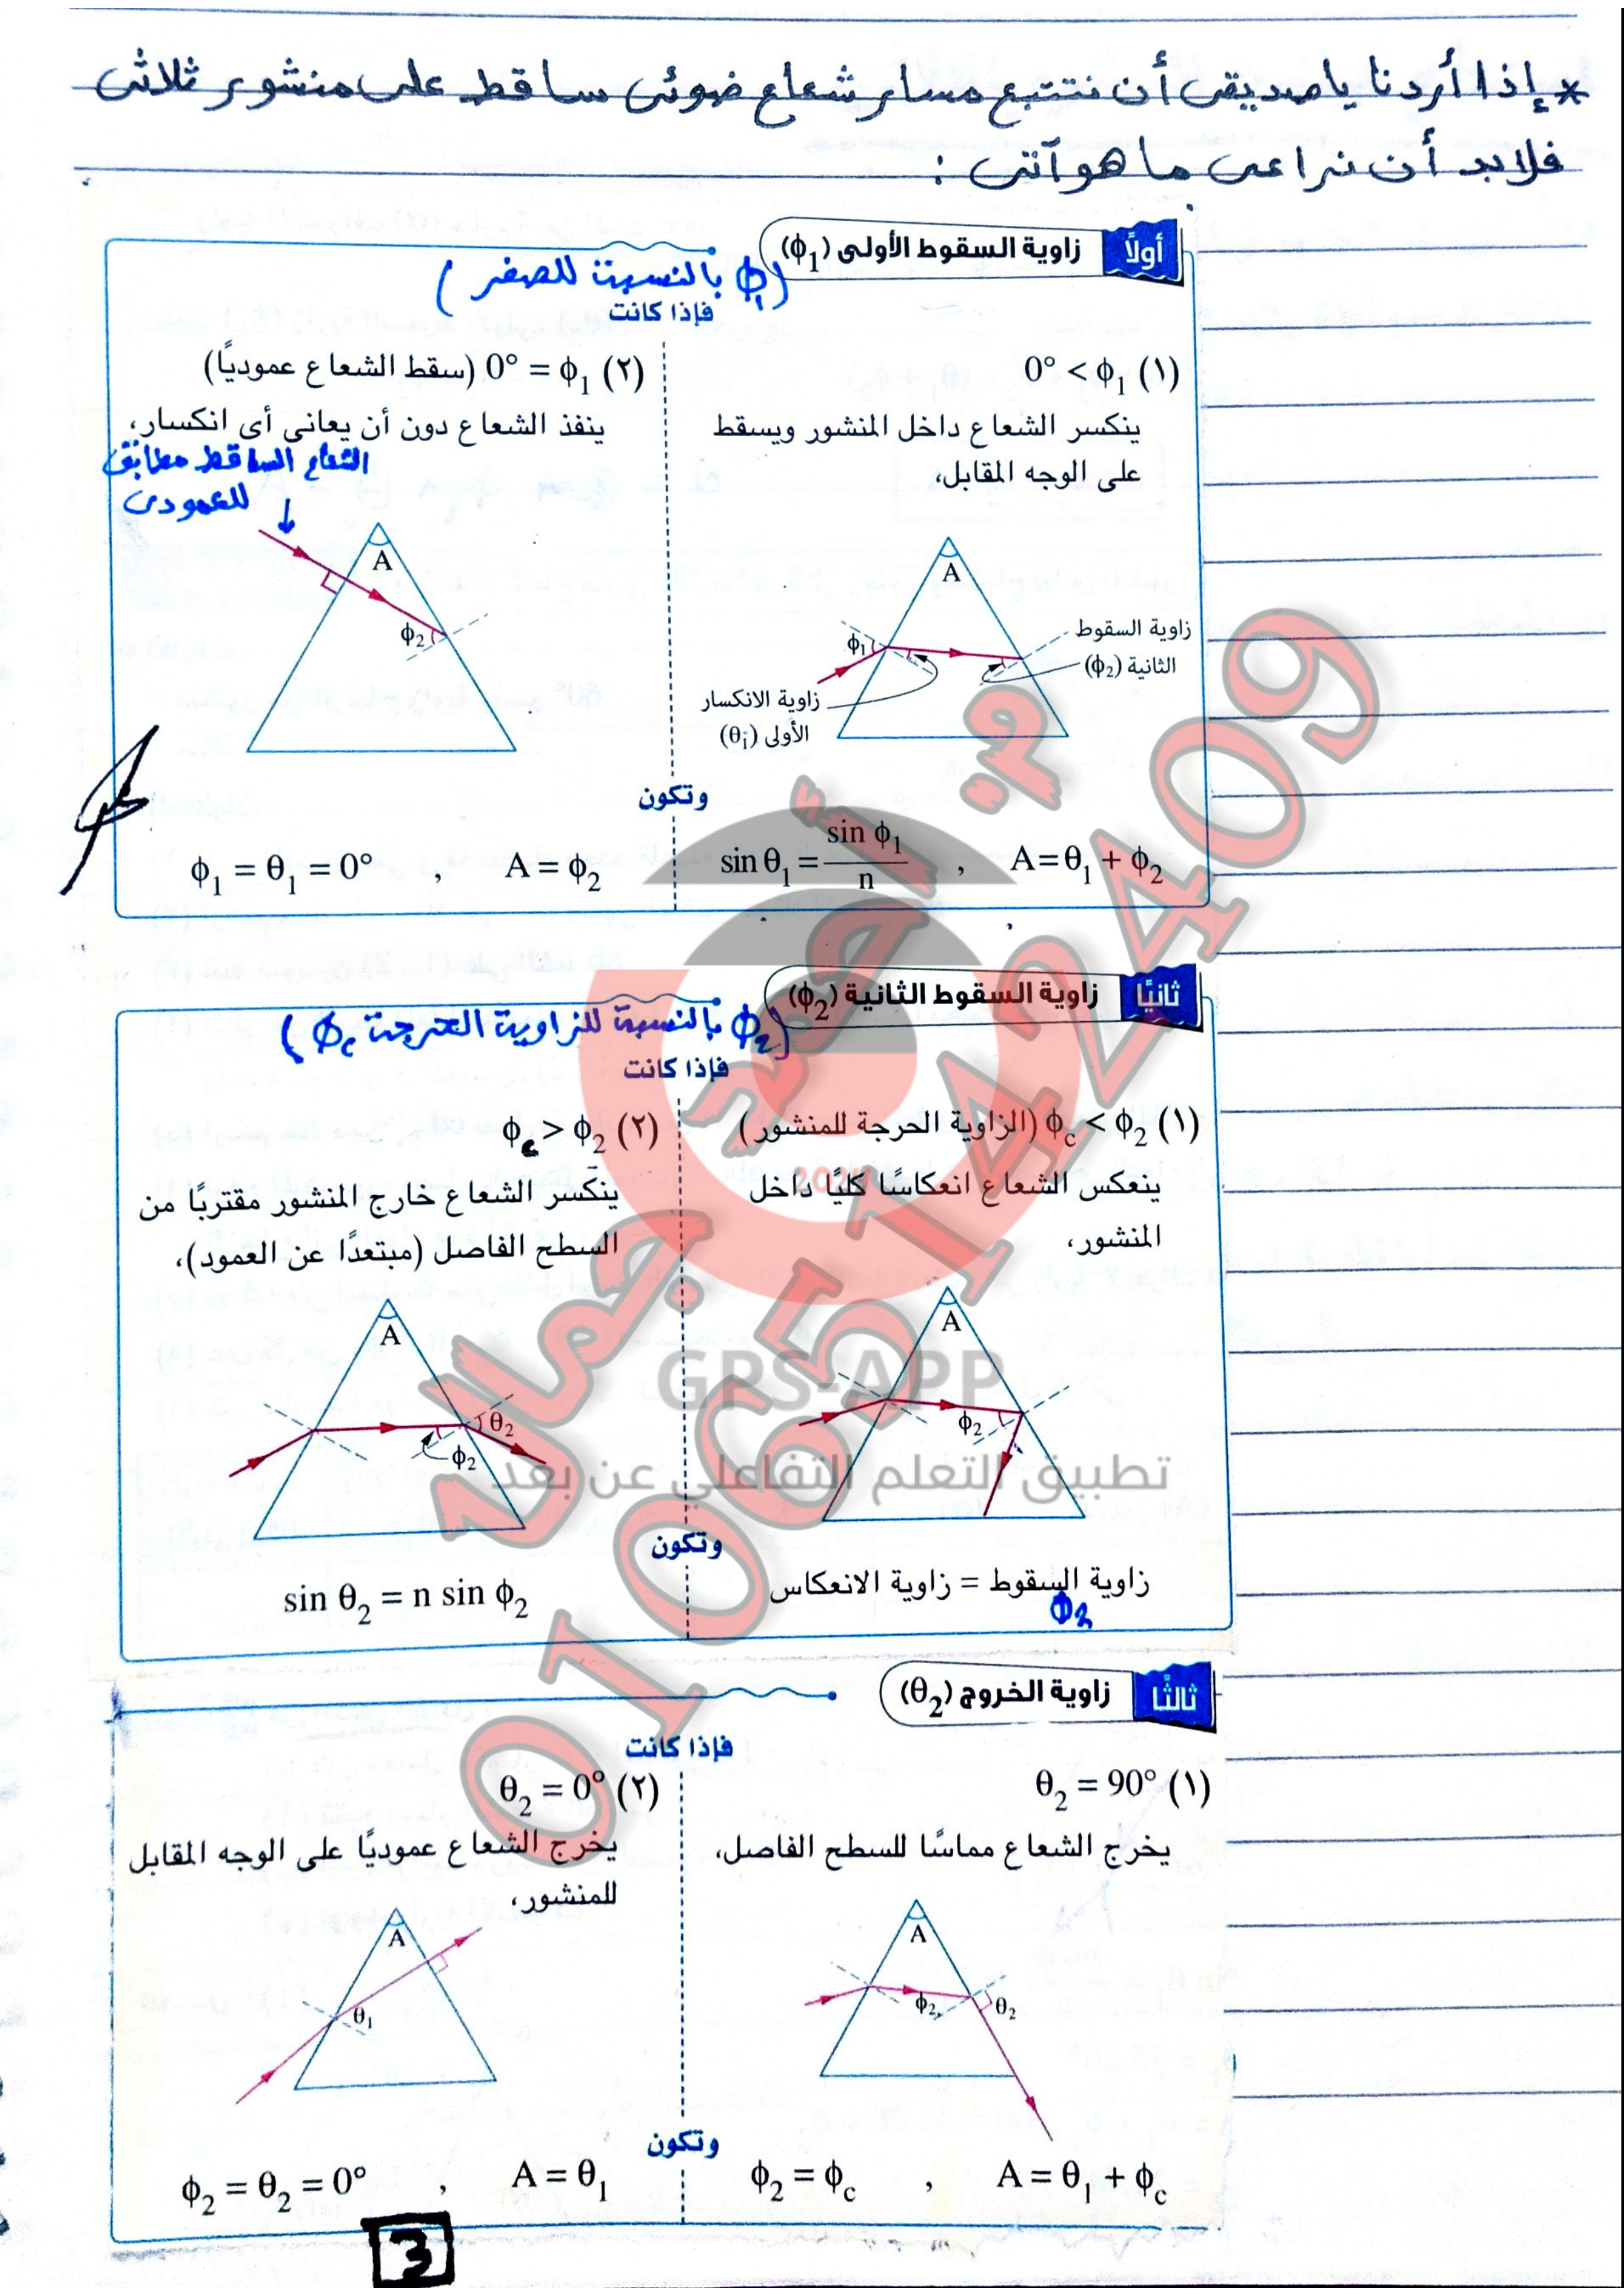 * إذا أردنا ياصديقى أن نتتبع مسار شعاع ضوئى ساقط على منشور ثلاثى
فلابد أن نراعى ما هو آتى :
أولاً زاوية السقوط الأولى (ϕ₁)
(ϕ₁ بالنسبة للصفر)
فإذا كانت
(١) ϕ₁ > 0°
ينكسر الشعاع داخل المنشور ويسقط
على الوجه المقابل،
A
ϕ₁
زاوية السقوط
الثانية (ϕ₂)
زاوية الانكسار
الأولى (θ₁)
(٢) ϕ₁ = 0° (سقط الشعاع عموديًا)
ينفذ الشعاع دون أن يعانى أى انكسار،
الشعاع الساقط مطابق
للعمودى
A
ϕ₂
وتكون
sin θ₁ = sin ϕ₁ / n , A = θ₁ + ϕ₂
ϕ₁ = θ₁ = 0° , A = ϕ₂
ثانيًا زاوية السقوط الثانية (ϕ₂)
(ϕ₂ بالنسبة للزاوية الحرجة ϕc)
فإذا كانت
(١) ϕ₂ > ϕc (الزاوية الحرجة للمنشور)
ينعكس الشعاع انعكاسًا كليًا داخل
المنشور،
A
ϕ₂
(٢) ϕ₂ < ϕc
ينكسر الشعاع خارج المنشور مقتربًا من
السطح الفاصل (مبتعدًا عن العمود)،
A
θ₂
ϕ₂
وتكون
زاوية السقوط = زاوية الانعكاس
ϕ₂
sin θ₂ = n sin ϕ₂
ثالثًا زاوية الخروج (θ₂)
فإذا كانت
(١) θ₂ = 90°
يخرج الشعاع مماسًا للسطح الفاصل،
A
ϕ₂
θ₂
(٢) θ₂ = 0°
يخرج الشعاع عموديًا على الوجه المقابل
للمنشور،
A
θ₁
وتكون
ϕ₂ = ϕc , A = θ₁ + ϕc
ϕ₂ = θ₂ = 0° , A = θ₁
3
م. أحمد جمال
01065142409
GPS-APP
تطبيق التعلم التفاعلي عن بعد